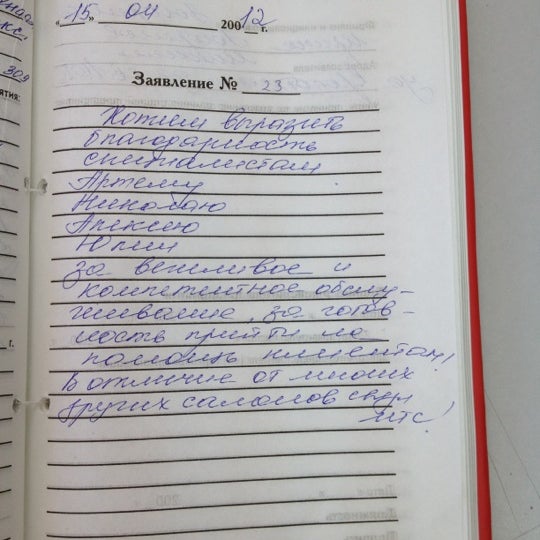 «15» 04 200 12 г.
Заявление № 23
Хотим выразить
благодарность
специалистам
Артему
Николаю
Алексею
Юрии
за вежливое и
компетентное обслу-
живание, за готов-
ность прийти на
помощь клиентам!
В отличие от многих
других салонов
МТС!
309
ятия:
г.